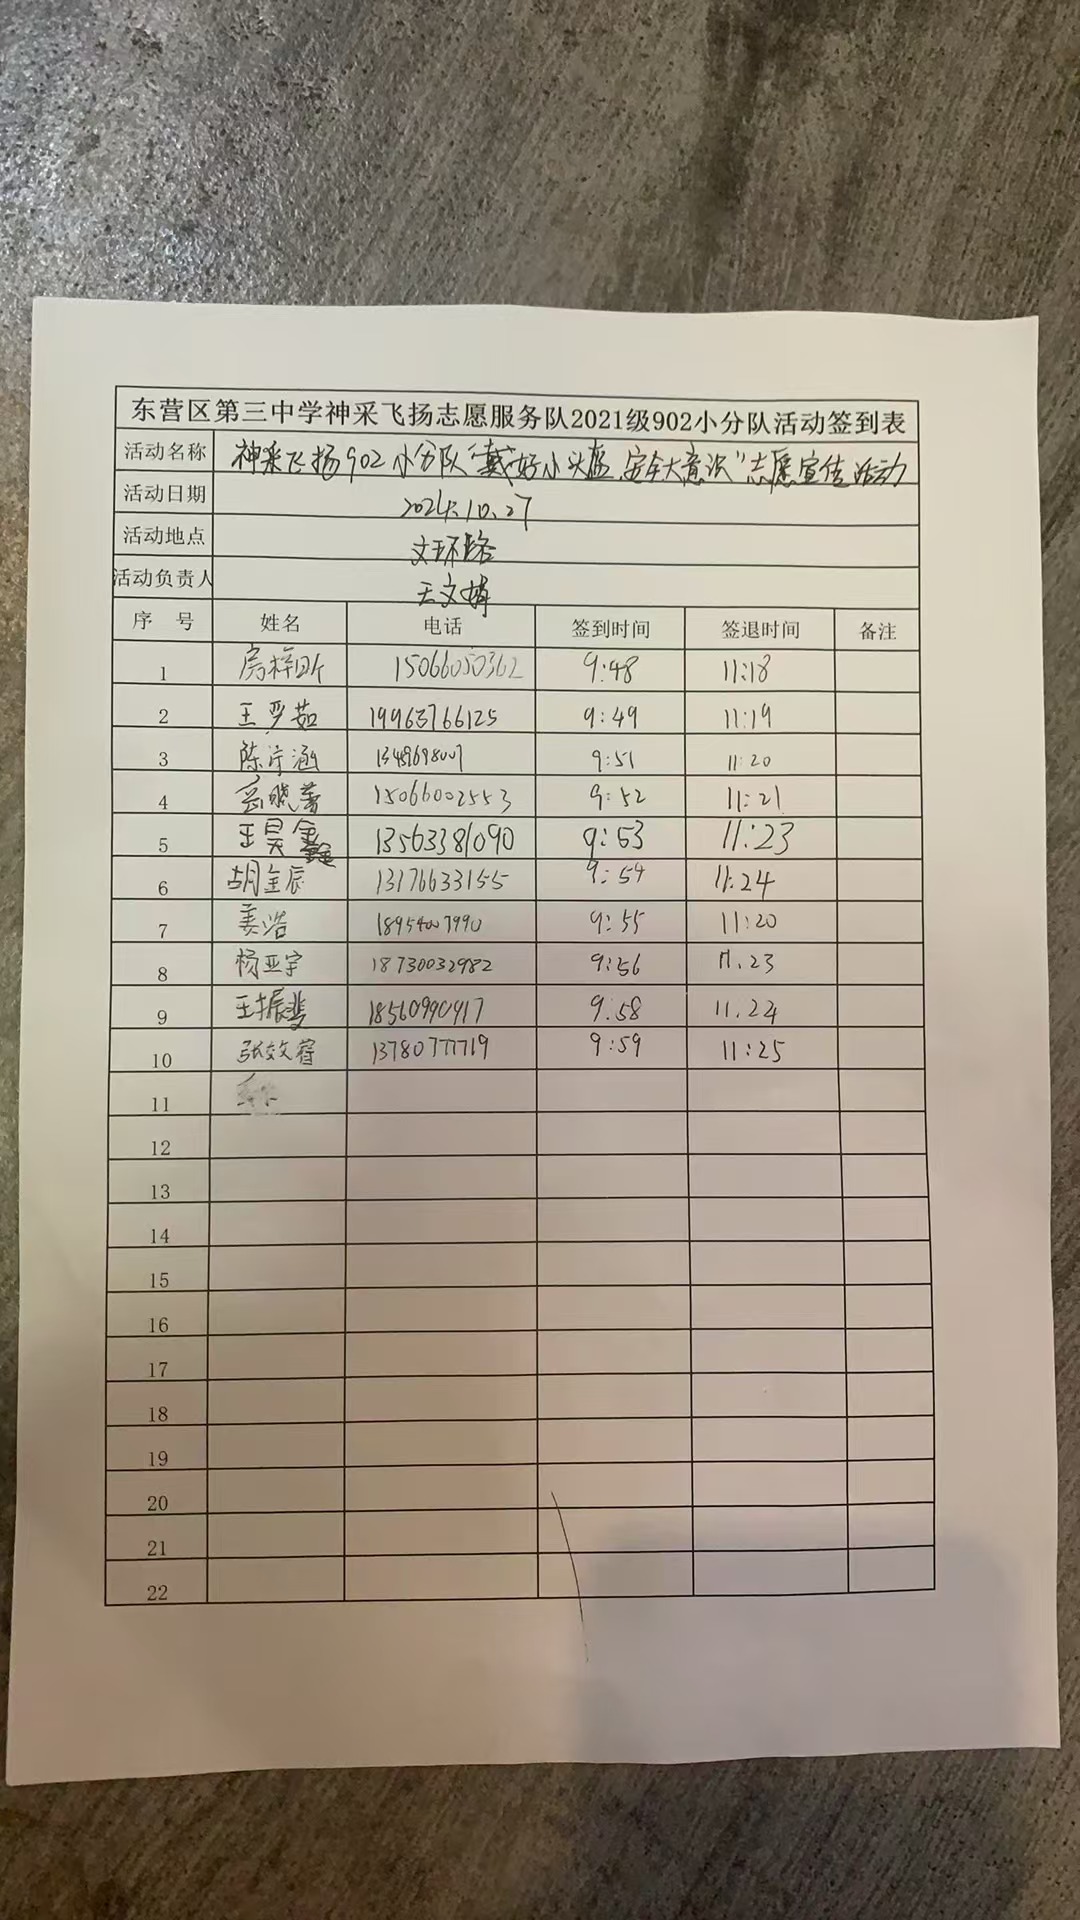 东营区第三中学神采飞扬志愿服务队2021级902小分队活动签到表
活动名称 神采飞扬902小分队“戴好小头盔,安全大意识”志愿宣传活动
活动日期 2024.10.27
活动地点 文环路
活动负责人 王文娟
序 号 姓名 电话 签到时间 签退时间 备注
1 房梓昕 15066050362 9:48 11:18
2 王梦茹 19963766125 9:49 11:19
3 陈宇涵 9:51 11:20
4 晓 15066002553 9:52 11:21
5 王昊鑫 13563381090 9:53 11:23
6 胡金辰 13176633155 9:54 11:24
7 姜浩 18954007990 9:55 11:20
8 杨亚宇 18730032982 9:56 11.23
9 王振斐 18560990917 9:58 11.24
10 张效蓉 13780777719 9:59 11:25
11
12
13
14
15
16
17
18
19
20
21
22